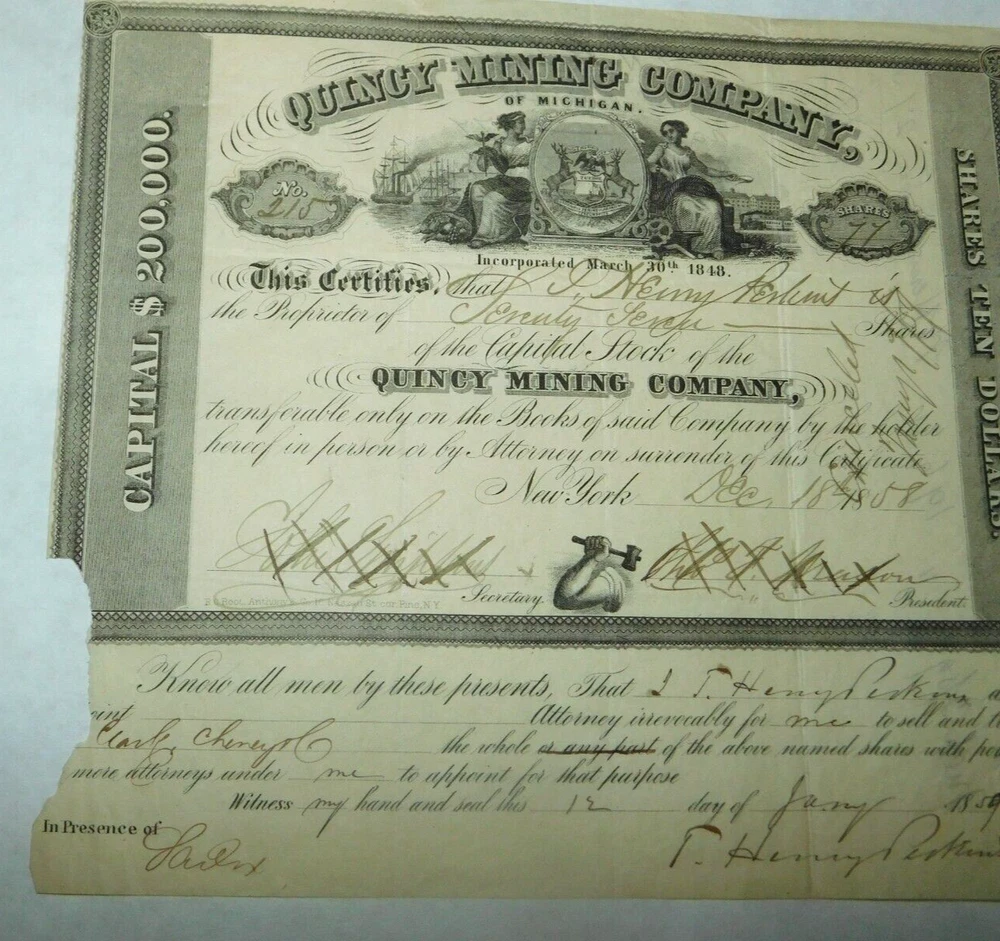 QUINCY MINING COMPANY,
OF MICHIGAN.
CAPITAL $ 200,000.
SHARES TEN DOLLARS.
No. 215
SHARES 77
Incorporated March 30th 1848.
This Certifies, that T. Henry Perkins is
the Proprietor of Seventy Seven Shares
of the Capital Stock of the
QUINCY MINING COMPANY,
transferable only on the Books of said Company by the holder
hereof in person or by Attorney on surrender of this Certificate
New York Dec. 18th 1858
Cancelled
Secretary.
President.
Know all men by these presents, That I T. Henry Perkins
Attorney irrevocably for me to sell and
Clark, Cheney & Co the whole or any part of the above named shares with
more attorneys under me to appoint for that purpose
Witness my hand and seal this 12 day of Jany 1859
In Presence of
T. Henry Perkins